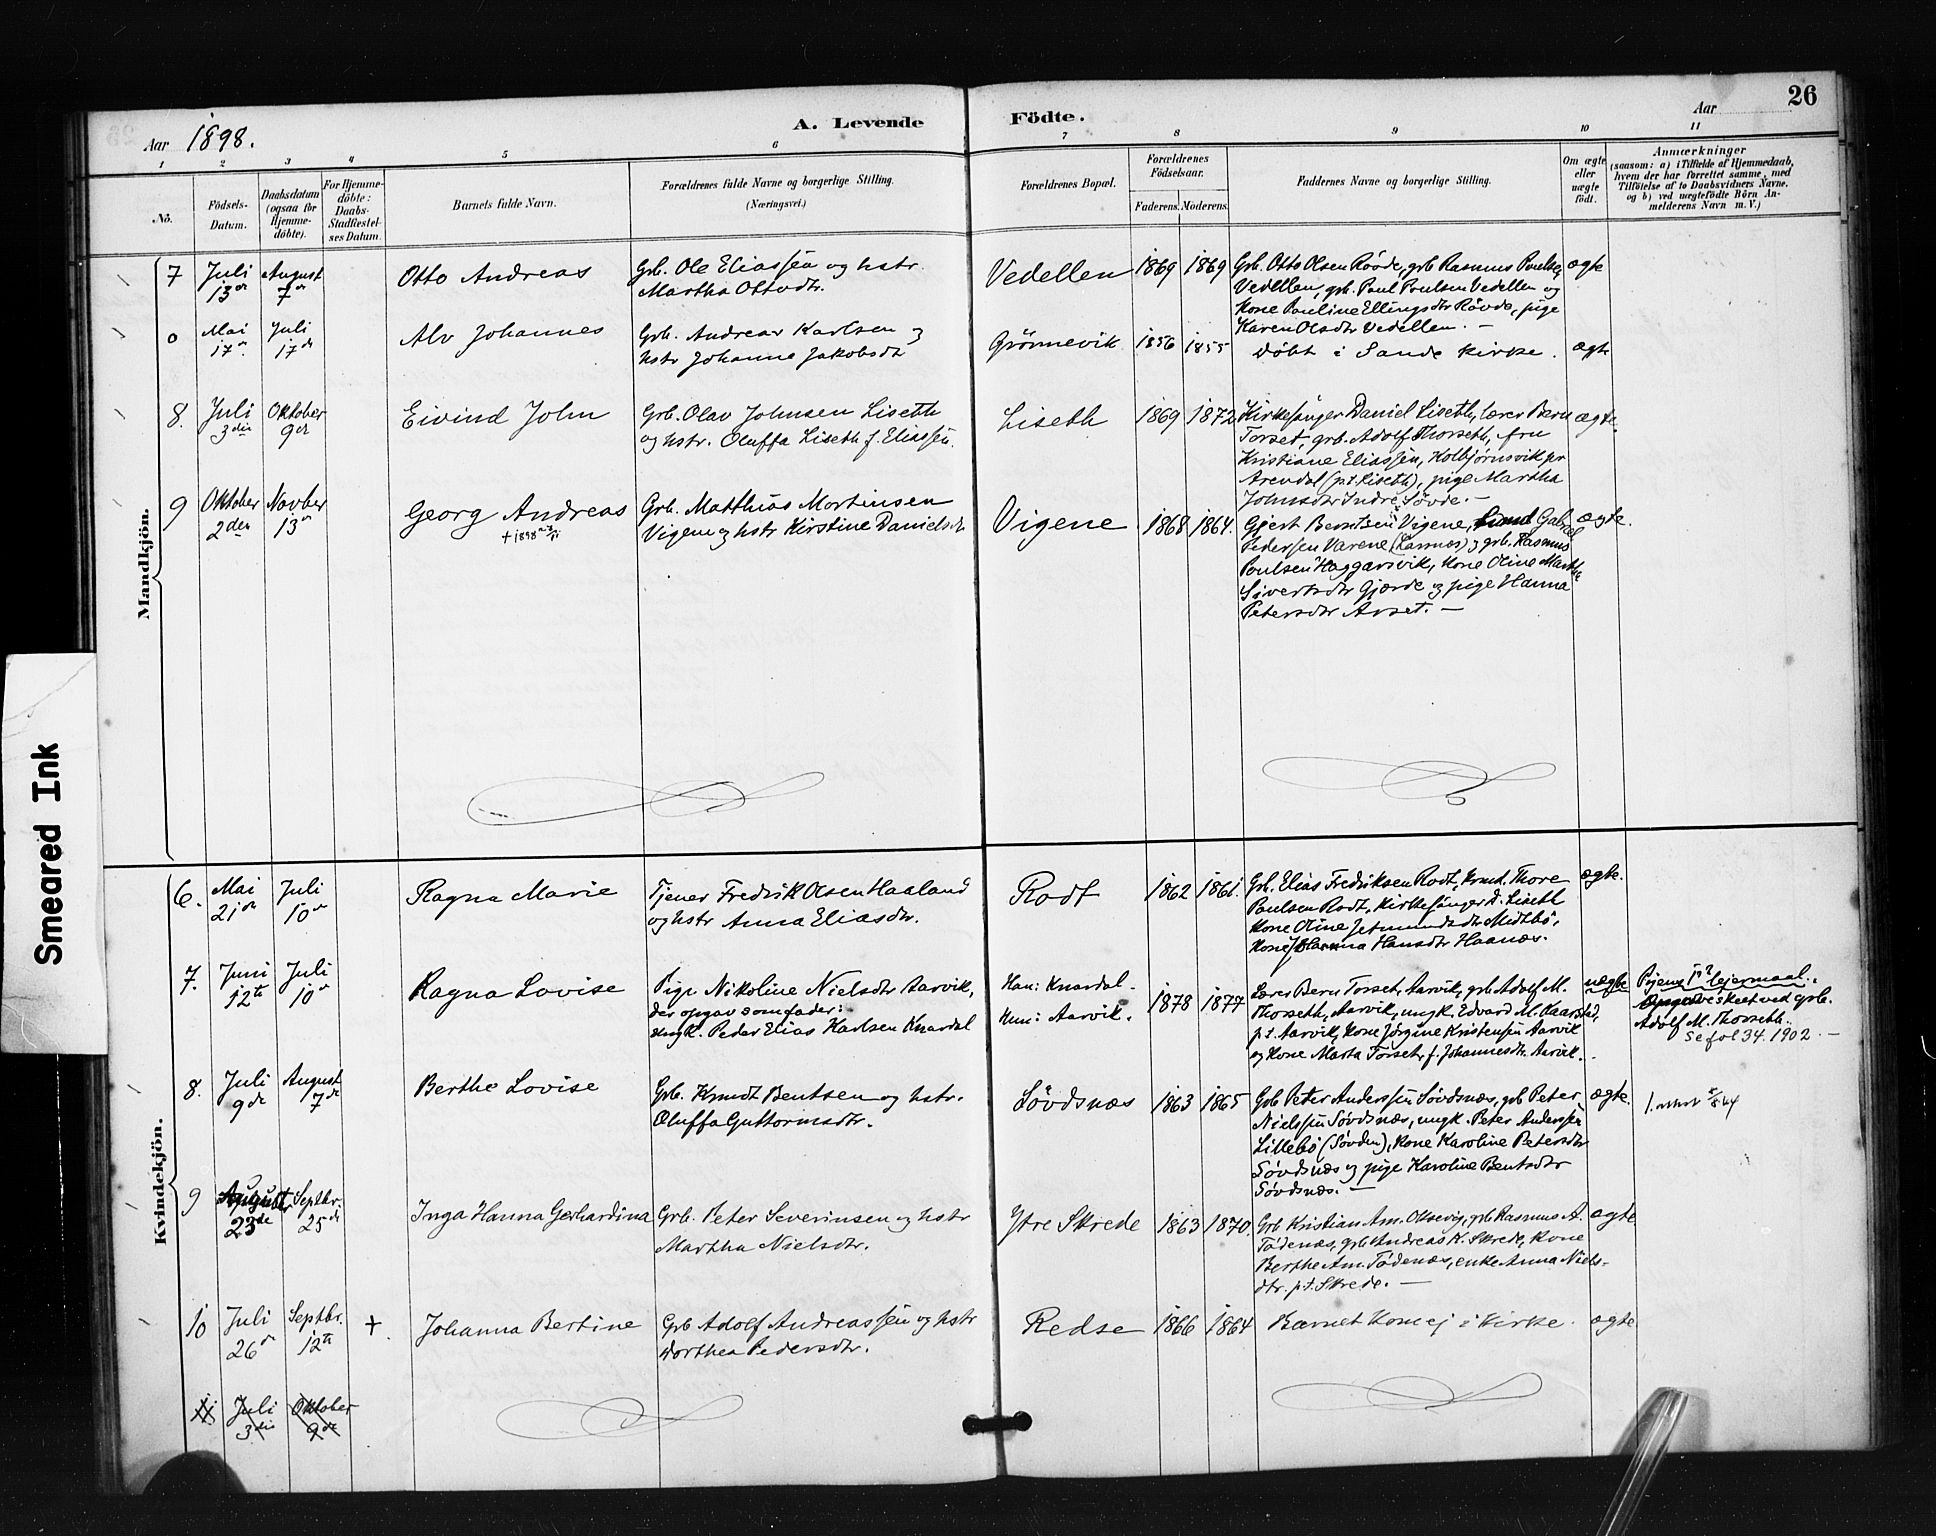 26
Aar 1898.
A. Levende Födte.
Aar
1 2 3 4 5 6 7 8 9 10 11
Nò.
Födsels-Datum.
Daabsdatum (ogsaa för Hjemme-döbte).
For Hjemme-döbte: Daabs-Stadfæstel-ses Datum.
Barnets fulde Navn.
Forældrenes fulde Navne og borgerlige Stilling.
(Næringsvei.)
Forældrenes Bopæl.
Forældrenes Födselsaar.
Faderens. Moderens.
Faddernes Navne og borgerlige Stilling.
Om ægte eller uægte födt.
Anmærkninger
(saasom: a) i Tilfælde af Hjemmedaab,
hvem der har forrettet samme, med
Tilföielse af to Daabsvidners Navne,
og b) ved uægtefödte Börn An-
melderens Navn m. V.)
Mandkjön.
7 Juli 13de August 7de
Otto Andreas
Grb. Ole Eliassen og hstr.
Martha Ottosdtr.
Vedellen 1869 1869
Grb. Otto Olsen Röóde, grb Rasmus Poulsen
Vedellen, grb. Paul Poulsen Vedellen og
Kone Pauline Ellingsdtr Rövde, pige
Karen Olsdtr Vedellen. —
ægte
0 Mai 17de Juli 17de
Alv Johannes
Grb. Andreas Karlsen og
hstr Johanne Jakobsdt
Grönnevik 1856 1855
Döbt i Sande Kirke.
ægte
8. Juli 3die Oktober 9de
Eivind John
Grb. Olav Johnsen Liseth
og hstr. Oluffa Liseth f. Eliassen.
Liseth 1869 1872
Kirkesanger Daniel Liseth, lærer Bern
Torset, grb. Adolf Thorseth, fru
Kristiane Eliassen, Kolbjörnsvik pr
Arendal (p.t. Liseth), pige Martha
Johnsdtr Indre Søvde. —
ægte.
9 Oktober 2den Novber 13de
Georg Andreas
+ 1898
Grb. Matthias Mortinsen
Vigene og hstr Kirstine Danielsdt
Vigene 1868 1864.
Gjert Berntsen Vigene, Gabriel
Pedersen Varene (Larsnes) og grb. Rasmus
Poulsen Haggarsvik, Kone Oline Marthe
Sivertsdtr Gjærde og pige Hanna
Petersdtr Arset. —
ægte.
Kvindekjön.
6. Mai 21de Juli 10de
Ragna Marie
Tjener Fredrik Olsen Haaland
og hstr Anna Eliasdtr.
Rodt 1862 1861.
Grb. Elias Fredriksen Rodt, Krmd. Thore
Paulsen Rodt, Kirkesanger D. Liseth
Kone Oline Jetmundsdtr Midtbö,
Kone Johanna Hansdtr Haanæs.
ægte.
7. Juni 12te Juli 10de
Ragna Lovise
Pige Nikoline Nielsdtr Aarvik,
der opgav som fader:
ungk. Peder Elias Karlsen Knardal
Han: Knardal.
Hun: Aarvik.
1878 1877
Lærer Bern Torset, Aarvik, grb Adolf M.
Thorseth, Aarvik, ungk. Edvard M. Kaarstad,
p.t. Aarvik, Kone Jörgine Kristensen Aarvik
og Kone Marta Torset, f. Johannesdtr. Aarvik.
uægte
Pigens 1ste lejermaal.
ved grb.
Adolf M. Thorseth.
Se fol 34. 1902. —
8. Juli 9de August 7de
Berthe Lovise
Grb. Knudt Bentsen og hstr.
Oluffa Guttormsdtr.
Søvdsnæs 1863 1865
Grb Peter Anderssen Søvdsnæs, grb Peter
Nielssen Søvdsnæs, ungk. Peter Anderssen
Lillebö (Søvden), Kone Karoline Petersdtr
Søvdsnæs og pige Karoline Bentsdtr
Søvdsnæs. —
ægte.
9 August 23de Septbr. 25de
Inga Hanna Gerhardina
Grb. Peter Severinsen og hstr
Martha Nielsdtr.
Ytre Skrede 1863 1870.
Grb Kristian Am. Oksevig, grb Rasmus A.
Tödenæs, grb Andreas K. Skrede, Kone
Berthe Am. Tödenæs, enke Anna Niels-
dtr. p.t. Skrede. —
ægte
10 Juli 26de Septbr. 12te +
Johanna Bertine
Grb Adolf Andreassen og hstr
Dorthea Pedersdtr.
Redse 1866 1864
Barnet Kom ej i Kirke.
ægte
11 Juli 3die Oktober 9de
Smeared Ink